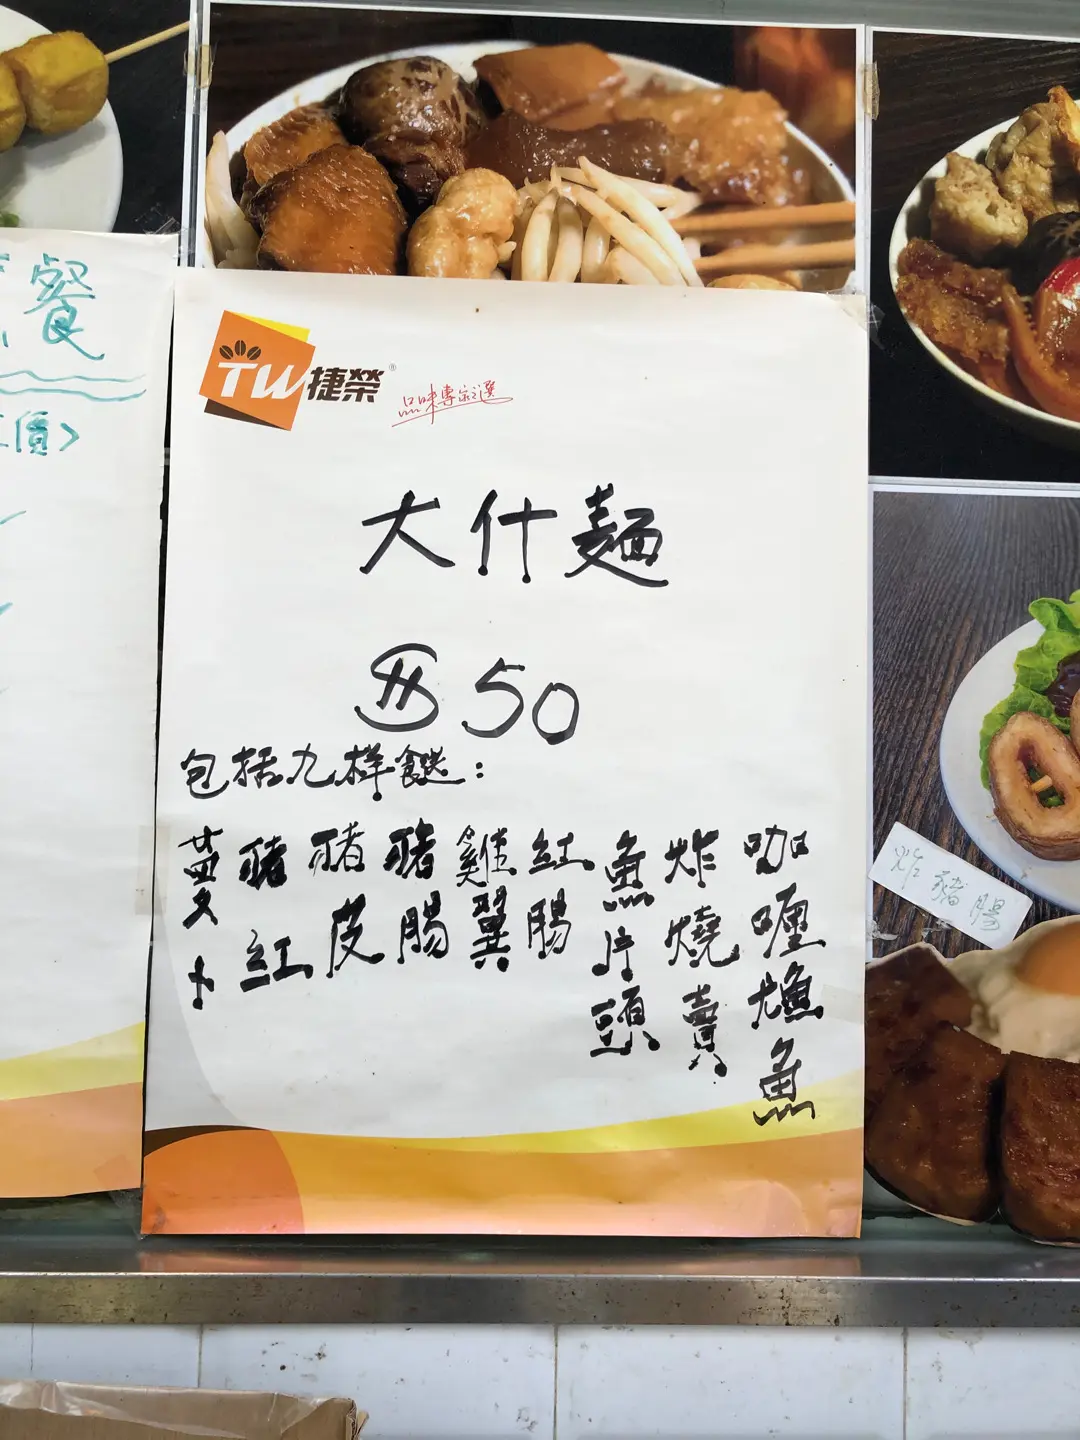 餐
價>
TW捷榮®
品味專家之選
大什麵
$50
包括九樣餸：
萝卜
豬紅
豬皮
豬腸
雞翼
紅腸
魚片頭
炸燒賣
咖喱魷魚
炸豬腸